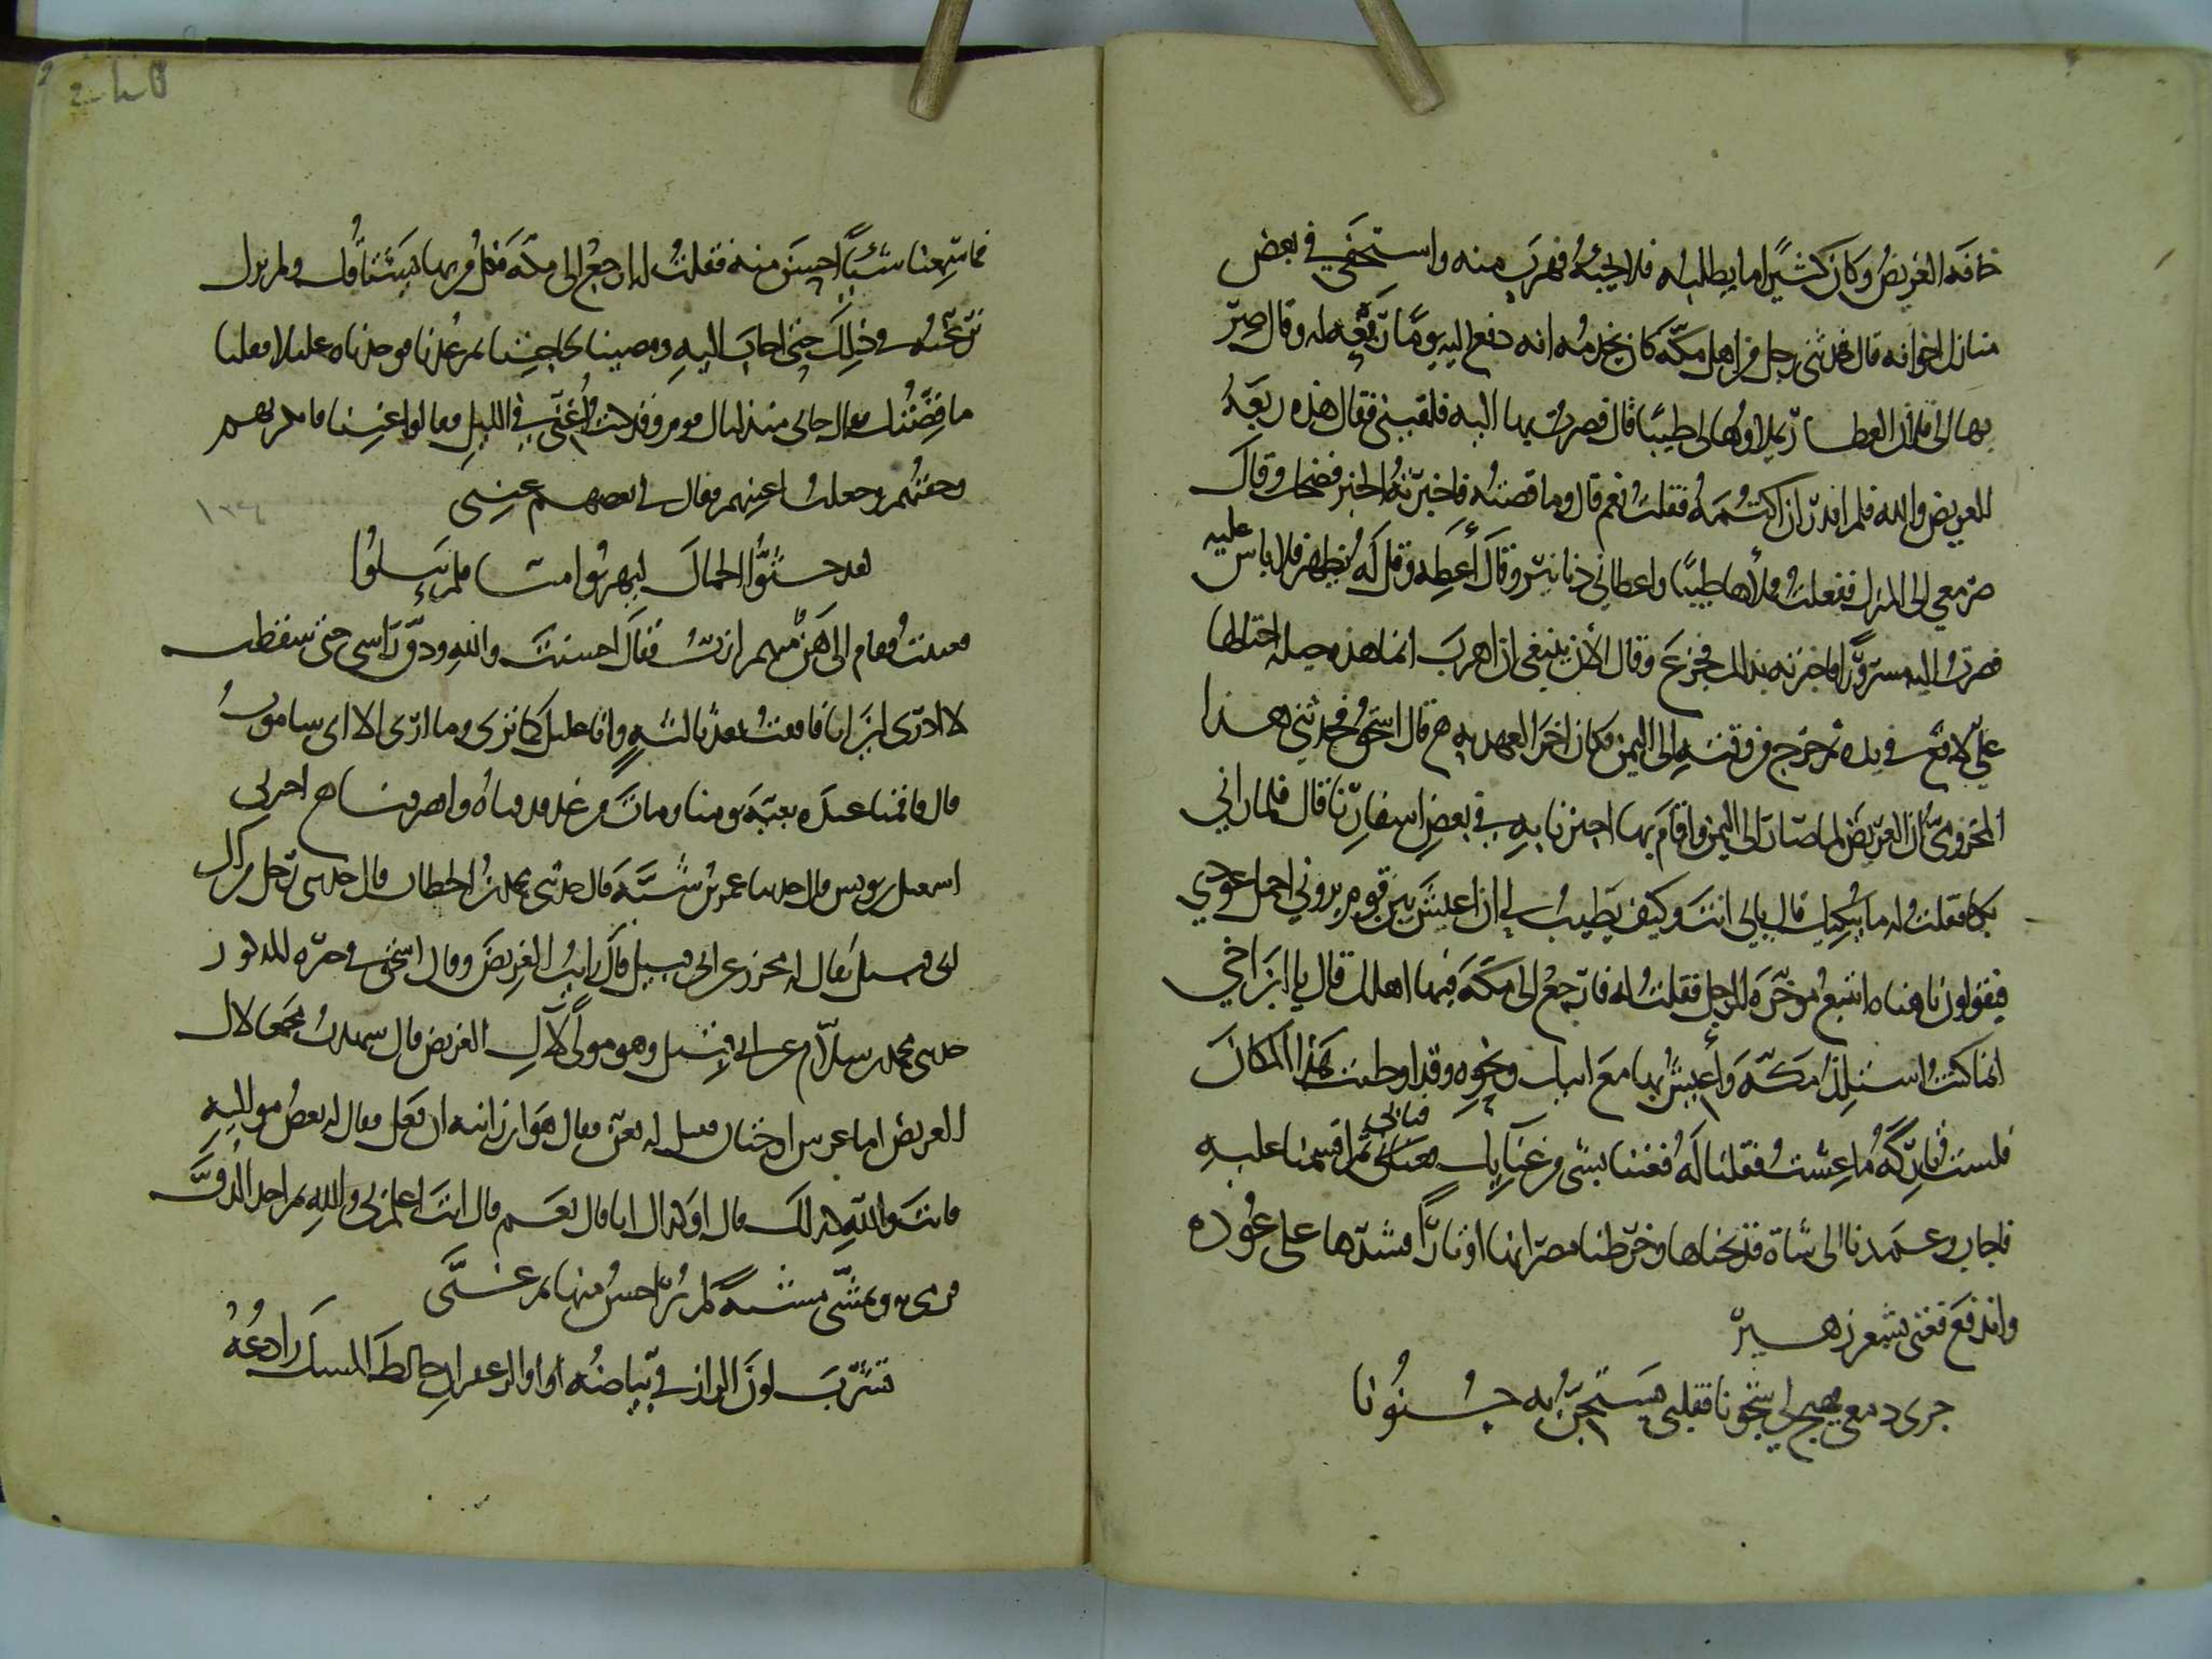 خافه الغريض وكان كثيرا ما يطلبه فلا يجيبه فهرب منه واستخفى في بعض
منازل اخوانه قال فحدثني رجل من اهل مكة كان يخدمه انه دفع اليه يوما ربعة له وقال صر
بها الى فلان العطار يملاؤها لي طيبا قال فصرت بها اليه فلقيني فقال هذه ربعة
للغريض والله فلم اقدر ان اكتمه فقلت نعم قال وما قصته فاخبرته الخبر فضحك وقال
صر معي الى المنزل ففعلت وملأها طيبا واعطاني دنانير وقال أعطه وقل له يظهر فلا باس عليه
فصرت اليه مسرورا فاخبرته بذلك فجزع وقال الآن ينبغي ان اهرب انما هذه حيلة احتالها
علي لاقع في يده ثم خرج من وقته الى اليمن فكان اخر العهد به قال اسحق فحدثني هذا
المخزومي ان الغريض لما صار الى اليمن واقام بها اجتزنا به في بعض اسفارنا قال فلما راني
بكا فقلت له ما يبكيك قال بابي انت وكيف يطيب لي ان اعيش بين قوم يروني احمل عودي
فيقولون يا هناه اتبيع مؤخرة الرحل فقلت له فارجع الى مكة ففيها اهلك قال يا ابن اخي
انما كنت استلذ مكة وأعيش بها مع ابيك ونحوه وقد اوطنت هذا المكان
فلست تاركه ما عشت فقلنا له فغننا بشي من غنايك فتابى ثم اقسمنا عليه
فاجاب وعمدنا الى شاة فذبحناها وخرطنا مصرانها اوتارا فشدها على عوده
واندفع فغنى بشعر زهير
جرى دمعي فهيج لي شجونا فقلبي يستجن به جنونا
فما سمعنا شيئا احسن منه فقلت له ارجع الى مكة فكل من بها يشتاقك ولم نزل
نرغبه في ذلك حتى اجاب اليه ومضينا لحاجتنا ثم عدنا فوجدناه عليلا فقلنا
ما قصتك قال جاني منذ ليال قوم وقد كنت أغني في الليل فقالوا غننا فانكرتهم
وخفتهم وجعلت اغنيهم فقال لي بعضهم غنني
لقد حثوا الجمال ليهربوا منا فلم يئلوا
ففعلت فقام الى هن منهم ازب فقال احسنت والله ودق راسي حتى سقطت
لا ادري اين انا فافقت بعد ثالثة وانا عليل كما ترى وما ارى الا اني ساموت
قال فاقمنا عنده بقية يومنا ومات من غد فدفناه وانصرفنا اخبرني
اسمعيل بن يونس قال حدثنا عمر بن شبة قال حدثني محمد بن الخطاب قال حدثني رجل من آل
ابي قبيل يقال له محرز عن ابي قبيل قال رايت الغريض وقال اسحق في خبره المذكور
حدثني محمد بن سلام عن ابي قبيل وهو مولى لآل الغريض قال شهدت مجمعا لال
الغريض اما عرس او ختان فقيل له تغن فقال هو ابن زانية ان فعل فقال له بعض مواليه
فانت والله كذلك قال اوكذاك انا قال نعم قال انت اعلم بي والله ثم اخذ الدف
فرمى به وتمشى مشية لم تر احسن منها ثم غنى
تشرب لون الرازقي بياضه او الزعفران خالط المسك رادعه